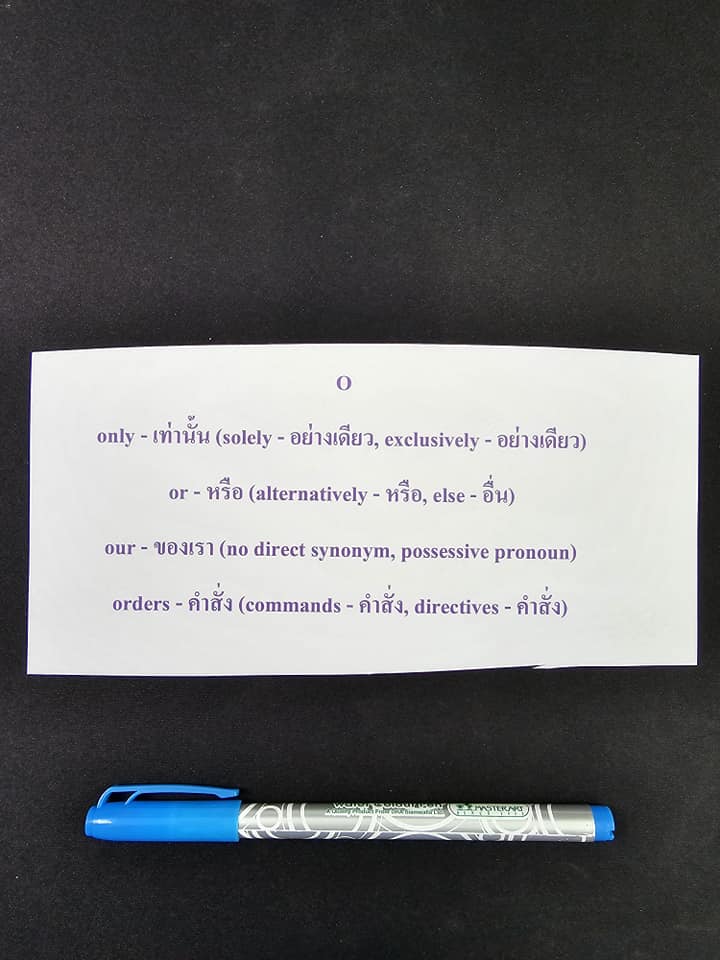 O
only - เท่านั้น (solely - อย่างเดียว, exclusively - อย่างเดียว)
or - หรือ (alternatively - หรือ, else - อื่น)
our - ของเรา (no direct synonym, possessive pronoun)
orders - คำสั่ง (commands - คำสั่ง, directives - คำสั่ง)
MASTERART
A Quality Product From